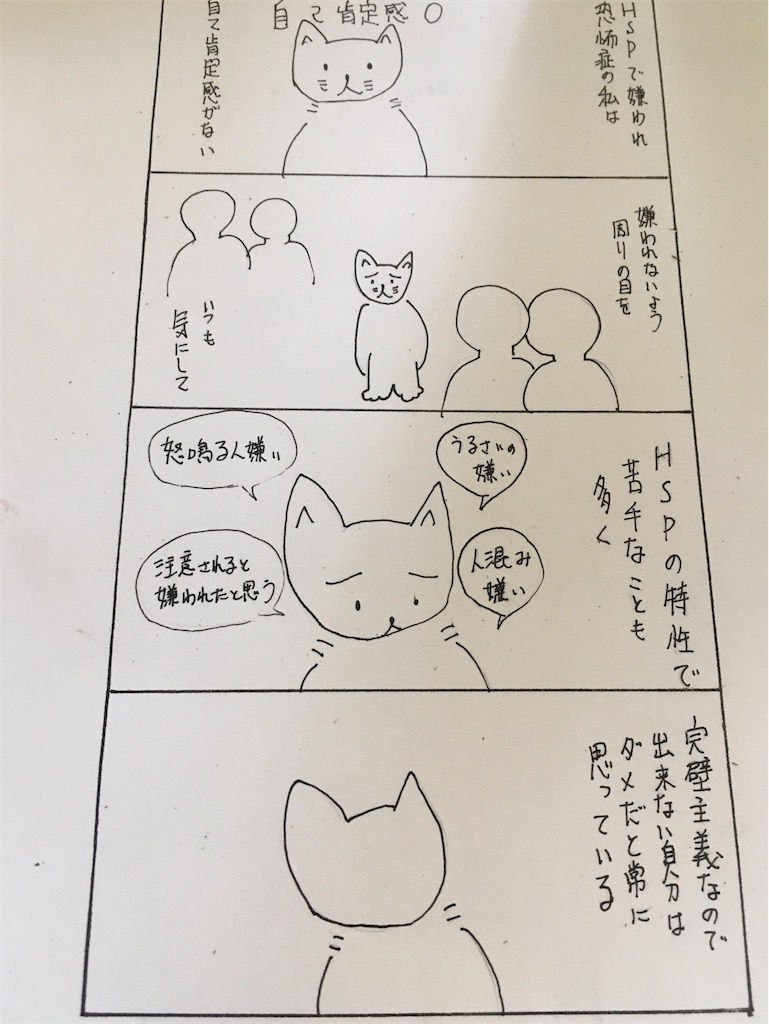 自己肯定感0
HSPで嫌われ
恐怖症の私は
自己肯定感がない
嫌われないよう
周りの目を
いつも
気にして
HSPの特性で
苦手なことも
多く
うるさいの
嫌い
怒鳴る人嫌い
人混み
嫌い
注意されると
嫌われたと思う
完璧主義なので
出来ない自分は
ダメだと常に
思っている